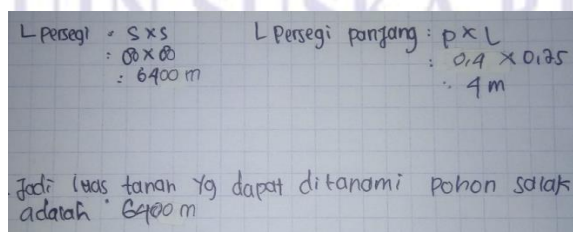 L persegi : S x S
: 80 x 80
: 6400 m
L Persegi panjang : P x L
: 0,4 x 0,25
: 4 m
Jadi luas tanah yg dapat ditanami pohon salak
adalah : 6400 m